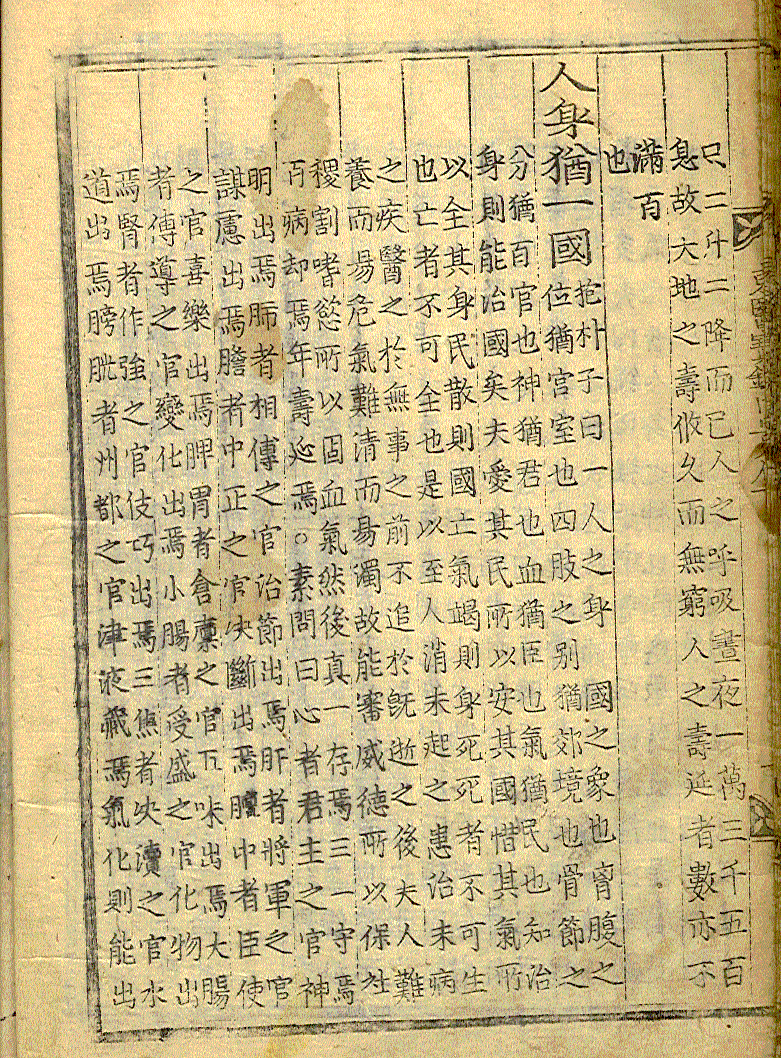 東醫寶鑑
只二升二降而已人之呼吸晝夜一萬三千五百
息故天地之壽攸久而無窮人之壽延者數亦不
滿百
也
人身猶一國
抱朴子曰一人之身 國之象也胷腹之
位猶宮室也四肢之别猶郊境也骨節之
分猶百官也神猶君也血猶臣也氣猶民也知治
身則能治國矣夫愛其民所以安其國惜其氣所
以全其身民散則國亡氣竭則身死死者不可生
也亡者不可全也是以至人消未起之患治未病
之疾醫之於無事之前不追於旣逝之後夫人難
養而昜危氣難清而昜濁故能審威德所以保社
稷割嗜慾所以固血氣然後真一存焉三一守焉
百病却焉年壽延焉○素問曰心者君主之官神
明出焉肺者相傅之官治節出焉肝者將軍之官
謀慮出焉膽者中正之官决斷出焉膻中者臣使
之官喜樂出焉脾胃者倉廩之官五味出焉大腸
者傳導之官變化出焉小腸者受盛之官化物出
焉腎者作強之官伎巧出焉三焦者决瀆之官水
道出焉膀胱者州都之官津液藏焉氣化則能出